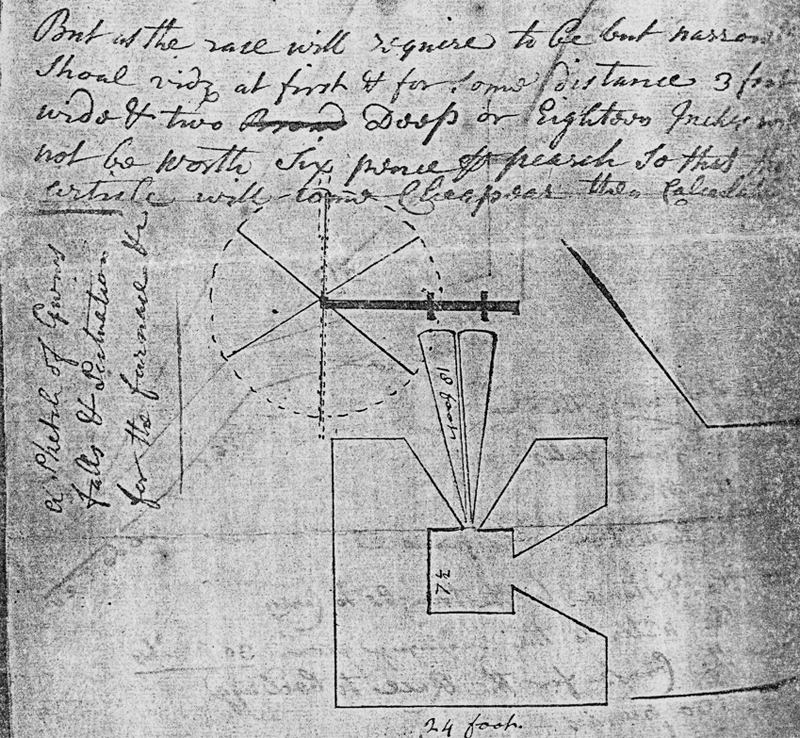 But as the race will require to be but narrow
Shoal vidz at first & for some distance 3 foot
wide & two Deep or Eighteen Inches
not be worth Six pence pearch So that the
article will come Cheapear then Calculate
A Sketch of Gwins
falls & Scituation
for the furnace &c
18 foot
7½
24 foot.